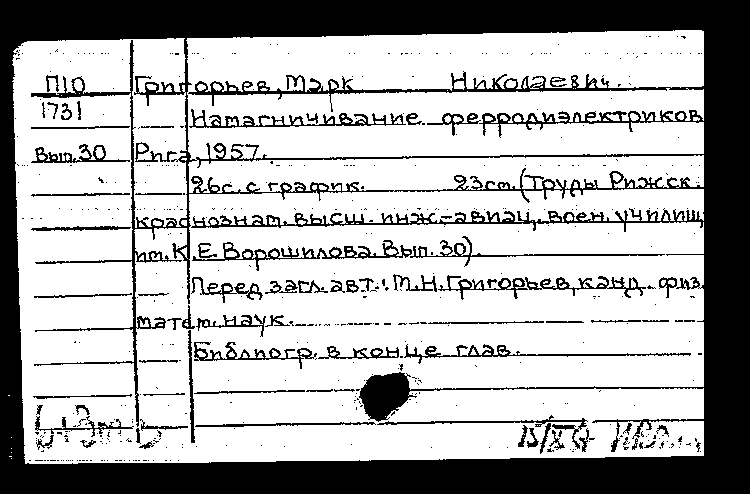 П10 Григорьев, Марк Николаевич.
1731 Намагничивание ферродиэлектриков
Вып.30 Рига, 1957.
26с. с график. 23см. (Труды Рижск.
краснознам. высш. инж.-авиац. воен. училищ
им. К.Е. Ворошилова. Вып. 30).
Перед загл. авт.: М.Н. Григорьев, канд. физ.
матем. наук.
Библиогр. в конце глав.